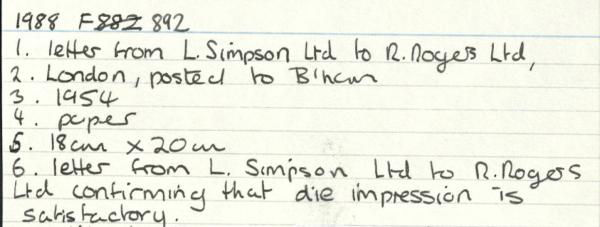 1988 F882 892
1. letter from L. Simpson Ltd to R. Rogers Ltd,
2. London, posted to B'ham
3. 1954
4. paper
5. 18cm x 20cm
6. letter from L. Simpson Ltd to R. Rogers
Ltd confirming that die impression is
satisfactory.